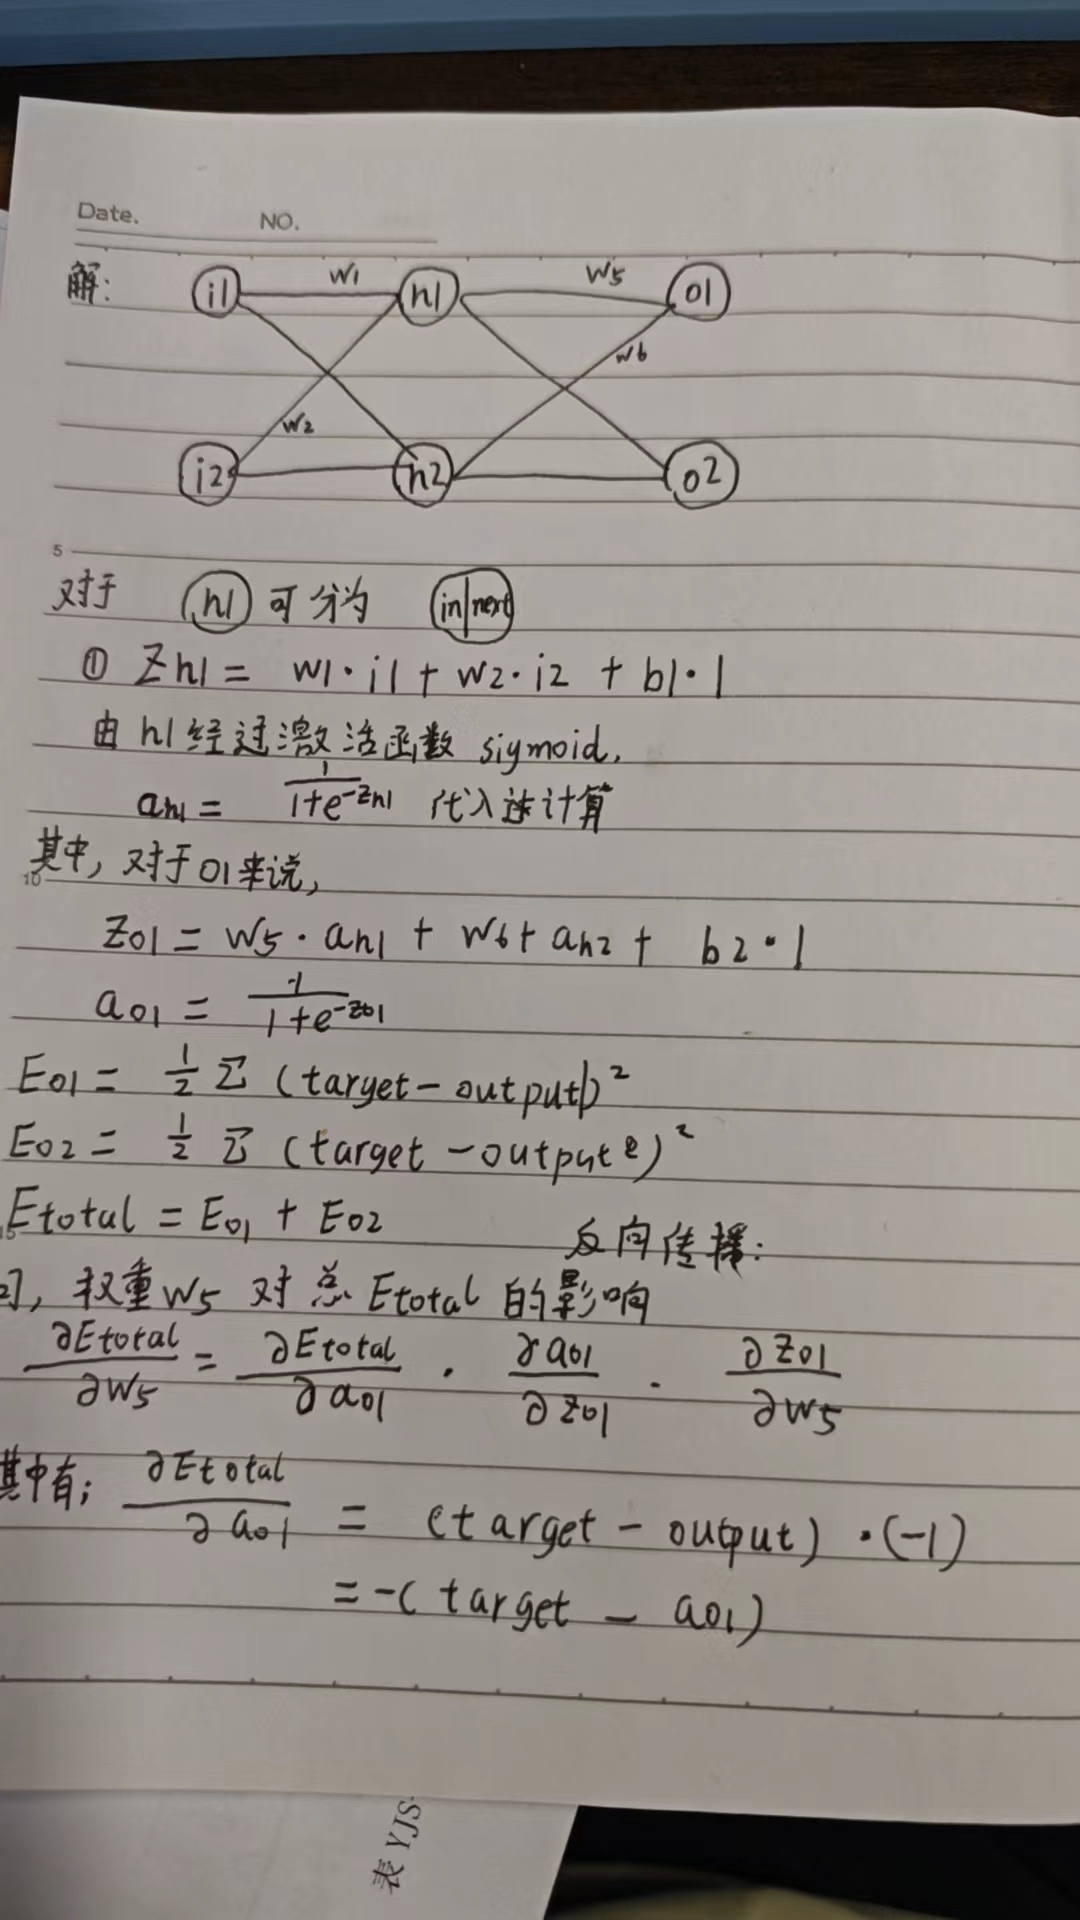 Date. NO.
解: i1 w1 h1 w5 o1
w6
w2
i2 h2 o2
5
对于 h1 可分为 in|next
① Zh1 = w1·i1 + w2·i2 + b1·1
由h1经过激活函数 sigmoid,
ah1 = 1/(1+e^-Zh1) 代入计算
其中, 对于o1来说,
10
Zo1 = w5·ah1 + w6+ah2 + b2·1
ao1 = 1/(1+e^-Zo1)
Eo1 = 1/2 Σ (target-output1)²
Eo2 = 1/2 Σ (target-output2)²
15
Etotal = Eo1 + Eo2 反向传播:
权重w5 对总Etotal的影响
∂Etotal/∂w5 = ∂Etotal/∂ao1 · ∂ao1/∂zo1 · ∂zo1/∂w5
其中有; ∂Etotal/∂ao1 = (target-output)·(-1)
= -(target - ao1)
表 YJS